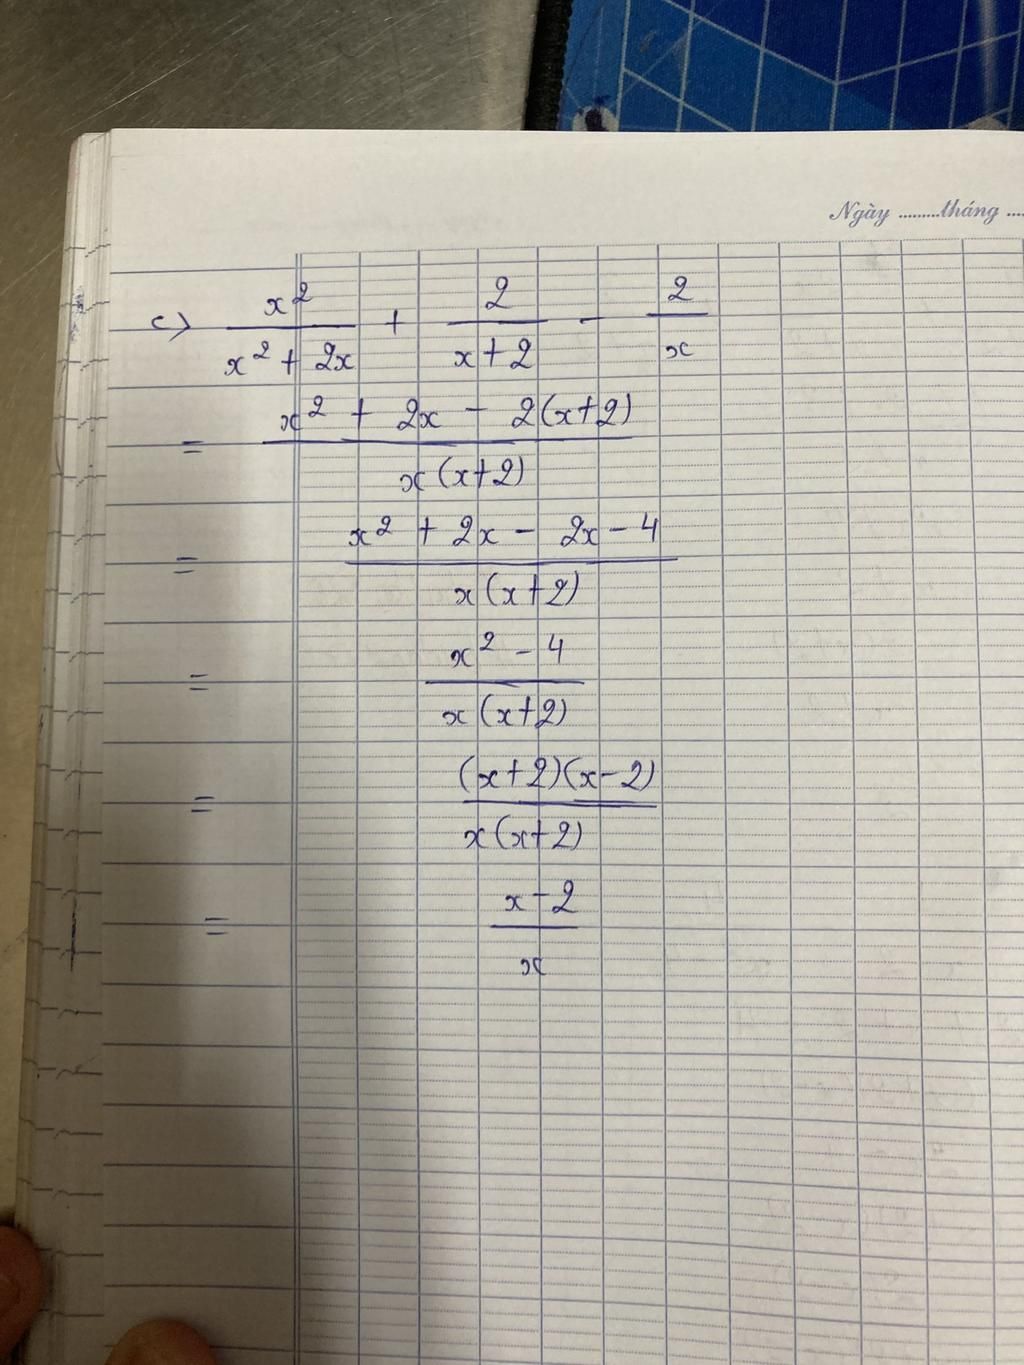 Ngày .........tháng ....
c) x²/(x² + 2x) + 2/(x + 2) - 2/x
= (x² + 2x - 2(x+2))/(x(x+2))
= (x² + 2x - 2x - 4)/(x(x+2))
= (x² - 4)/(x(x+2))
= ((x+2)(x-2))/(x(x+2))
= (x-2)/x